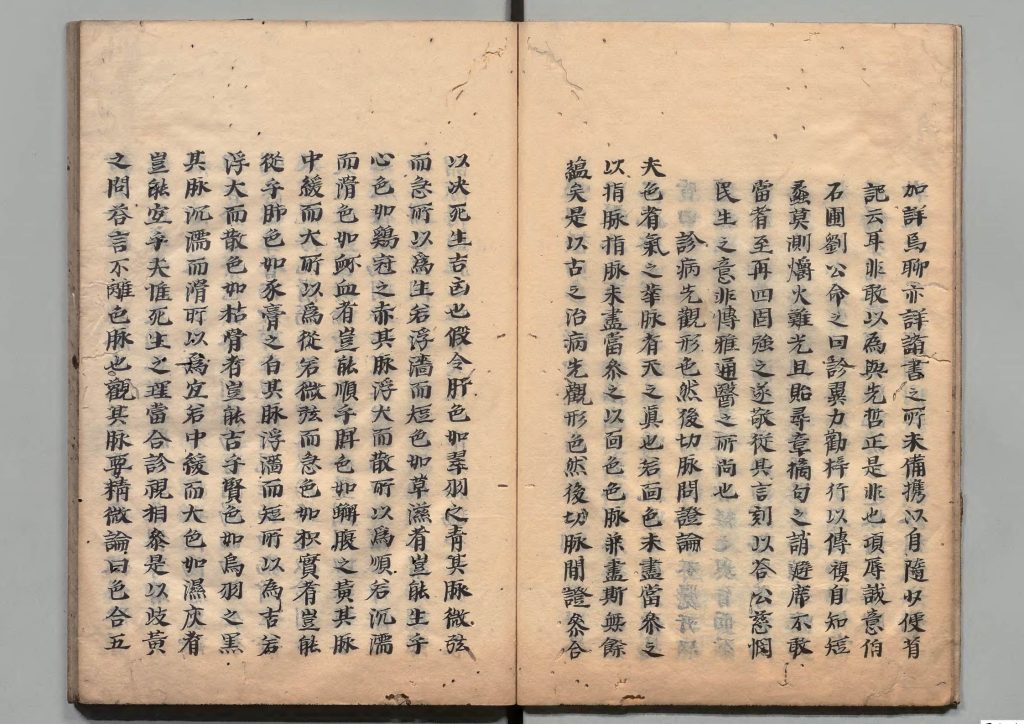 加詳焉聊亦詳諸書之所未備携以自隨少便省
記云耳非敢以為與先哲正是非也項辱誠意伯
石圃劉公命之曰診翼力勸梓行以傳複自知短
蠡莫測爝火難光且貽尋章摘句之誚避席不敢
當者至再四固強之遂敬從其言刻以答公慈憫
民生之意非傳雅通醫之所尚也
診病先觀形色然後切脉問證論
夫色者氣之華脉者天之眞也若面色未盡當叅之
以指脉指脉未盡當叅之以面色色脉兼盡斯無餘
藴矣是以古之治病先觀形色然後切脉問證叅合
以决死生吉凶也假令肝色如翠羽之青其脉微弦
而急所以爲生若浮濇而短色如草滋者豈能生乎
心色如鷄冠之赤其脉浮大而散所以爲順若沉濡
而滑色如衃血者豈能順乎脾色如蟹腹之黄其脉
中緩而大所以爲從若微弦而急色如枳實者豈能
從乎肺色如豕膏之白其脉浮濇而短所以為吉若
浮大而散色如枯骨者豈能吉乎腎色如烏羽之黑
其脉沉濡而滑所以爲宜若中緩而大色如濕灰者
豈能宜乎夫惟死生之理當合診視相叅是以歧黄
之問荅言不離色脉也觀其脉要精微論曰色合五